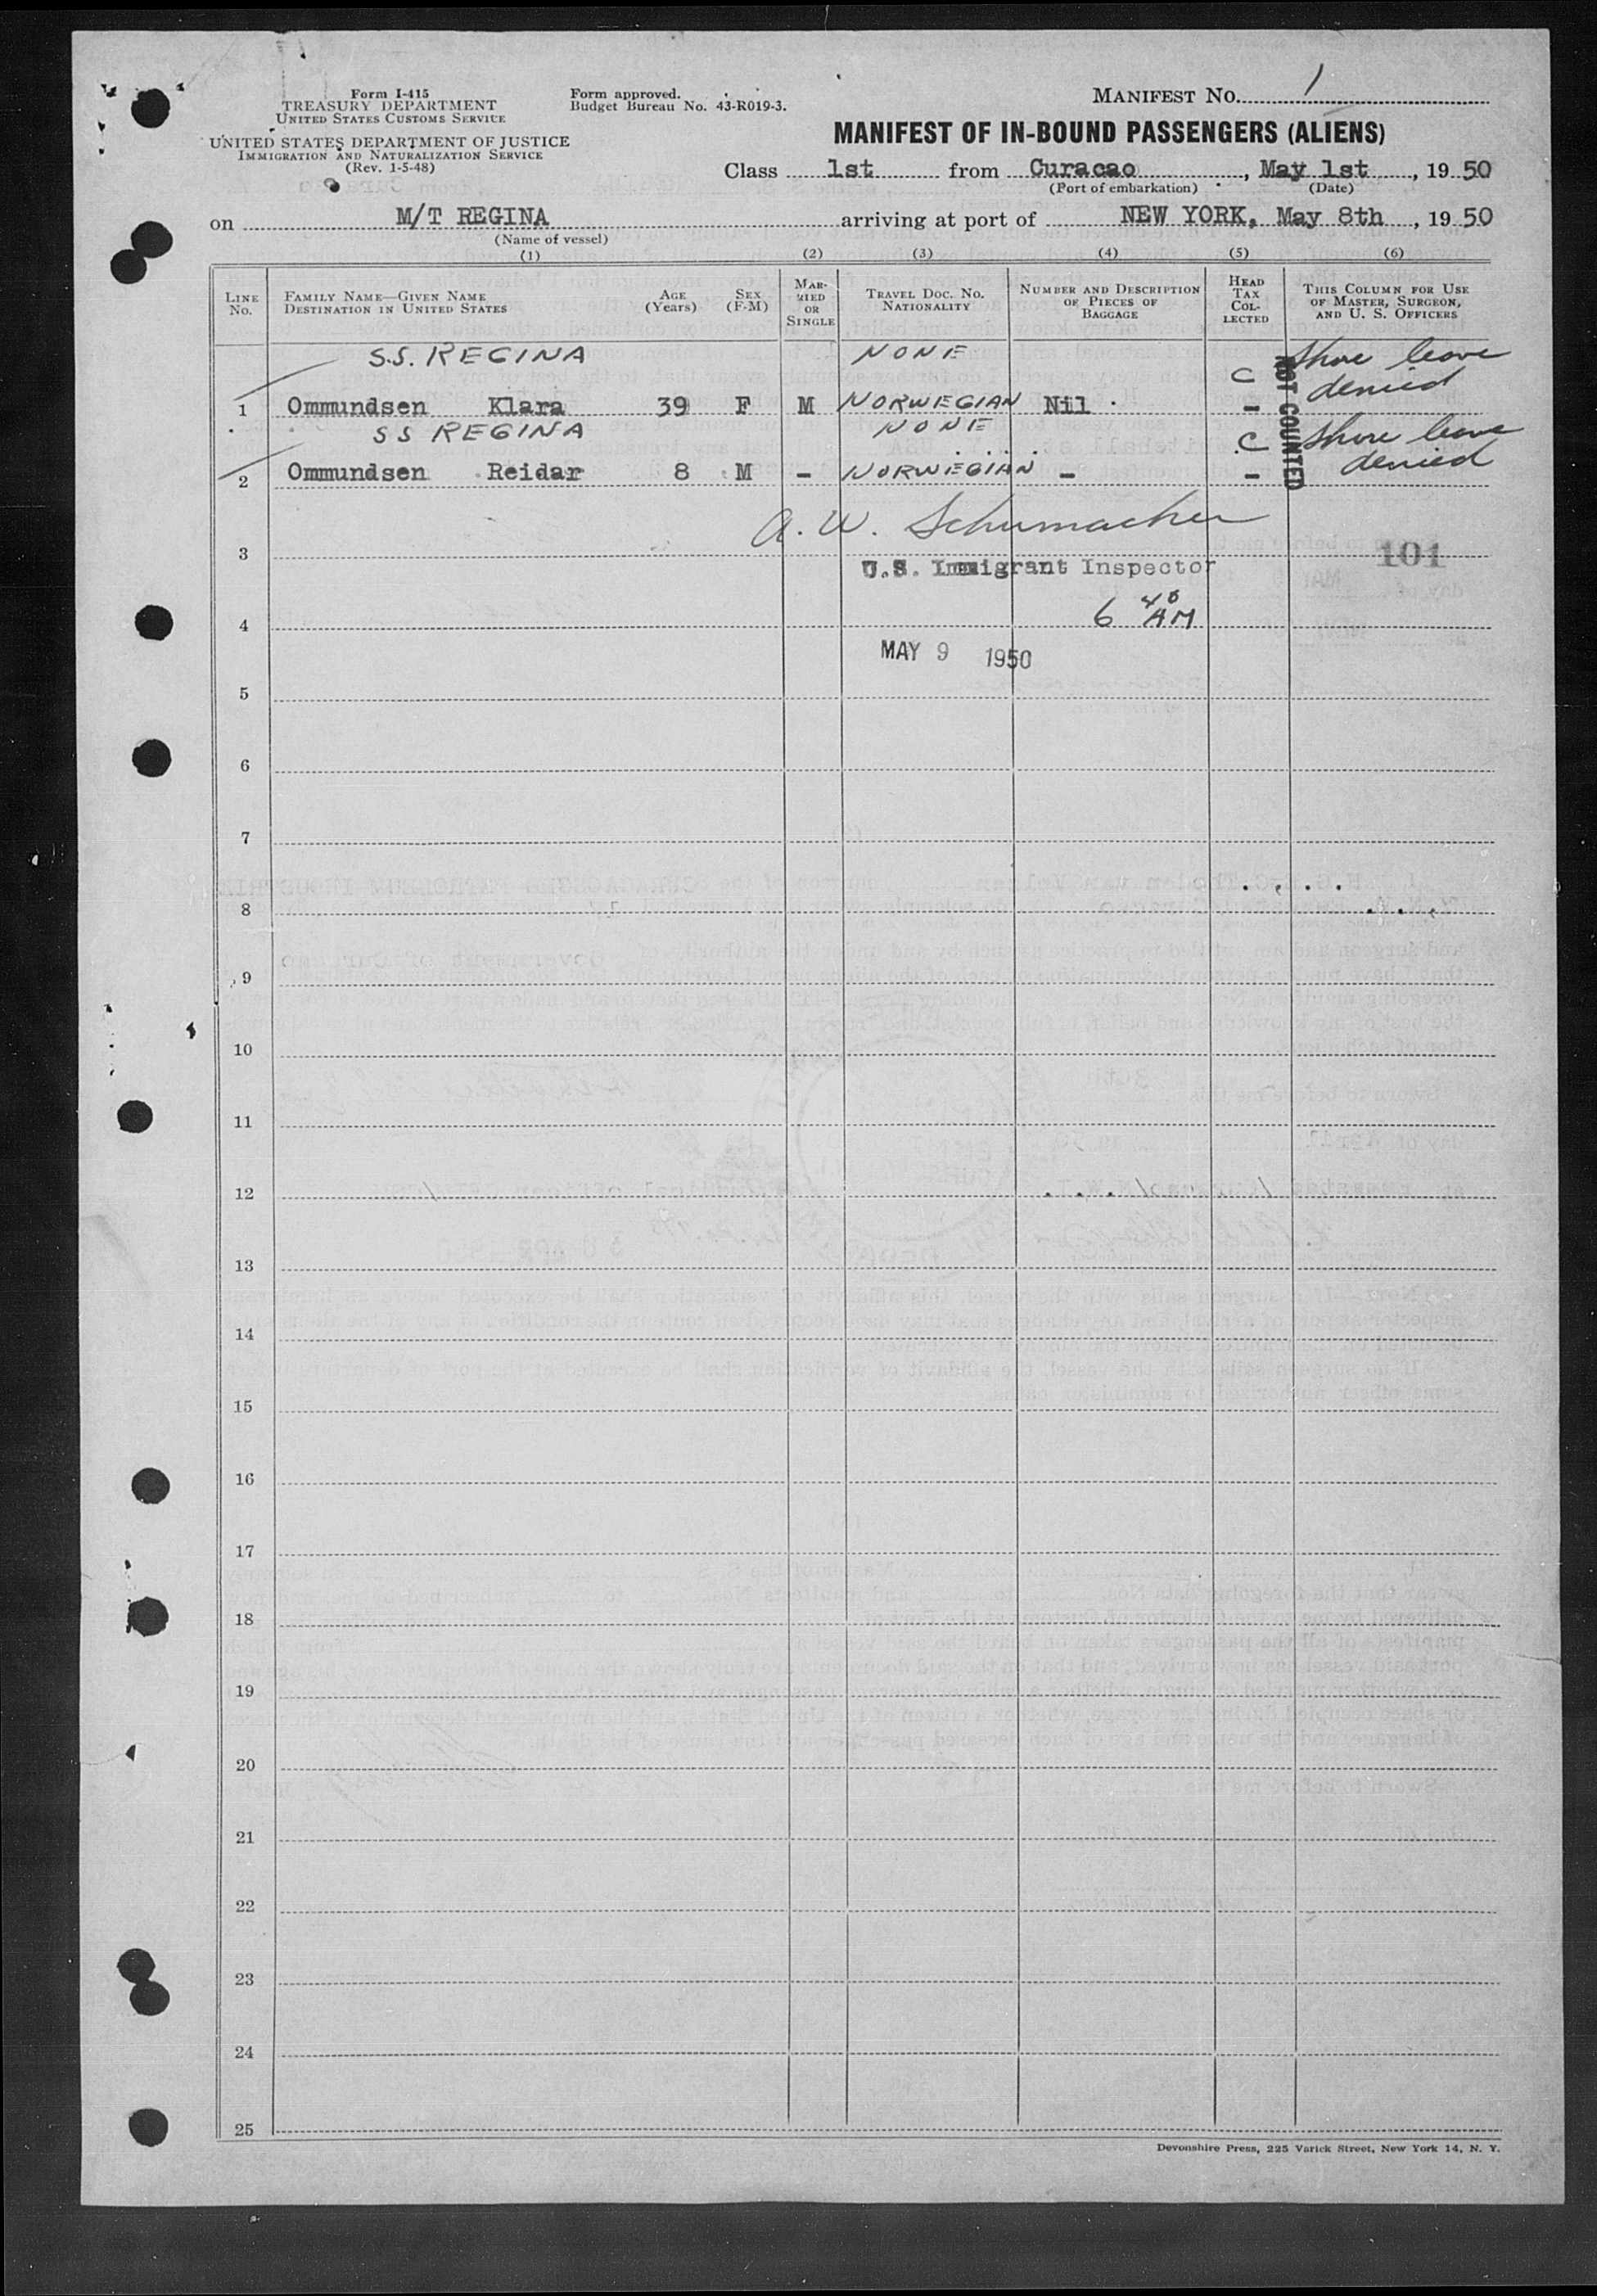 Form I-415
TREASURY DEPARTMENT
UNITED STATES CUSTOMS SERVICE
UNITED STATES DEPARTMENT OF JUSTICE
IMMIGRATION AND NATURALIZATION SERVICE
(Rev. 1-5-48)
Form approved.
Budget Bureau No. 43-R019-3.
MANIFEST NO. 1
MANIFEST OF IN-BOUND PASSENGERS (ALIENS)
Class 1st from Curacao, May 1st, 19 50
(Port of embarkation) (Date)
on M/T REGINA arriving at port of NEW YORK, May 8th, 19 50
(Name of vessel)
(1) (2) (3) (4) (5) (6)
LINE NO.
FAMILY NAME—GIVEN NAME
DESTINATION IN UNITED STATES
AGE
(YEARS)
SEX
(F-M)
MAR-
RIED
OR
SINGLE
TRAVEL DOC. NO.
NATIONALITY
NUMBER AND DESCRIPTION
OF PIECES OF
BAGGAGE
HEAD
TAX
COL-
LECTED
THIS COLUMN FOR USE
OF MASTER, SURGEON,
AND U. S. OFFICERS
S.S. REGINA NONE C Shore leave
1 Ommundsen Klara 39 F M NORWEGIAN Nil - denied
S S REGINA NONE C Shore leave
2 Ommundsen Reidar 8 M - NORWEGIAN - - denied
NOT COUNTED
A. W. Schumacher
3
U.S. Immigrant Inspector
101
6 40 AM
4
MAY 9 1950
5
6
7
8
9
10
11
12
13
14
15
16
17
18
19
20
21
22
23
24
25
Devonshire Press, 225 Varick Street, New York 14, N. Y.